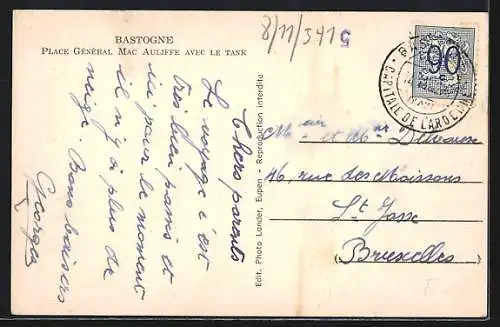 BASTOGNE
PLACE GÉNÉRAL MAC AULIFFE AVEC LE TANK
8/11/541
5
90
CAPITALE DE L'ARDENNE
Edit. Photo Lander, Eupen - Reproduction interdite
Chers parents
Le voyage c'est
très bien passé et
ici pour le moment
il n'y a plus de
neige. Bons baisers
Georges
et Mr
46, rue des Moissons
St Josse
Bruxelles